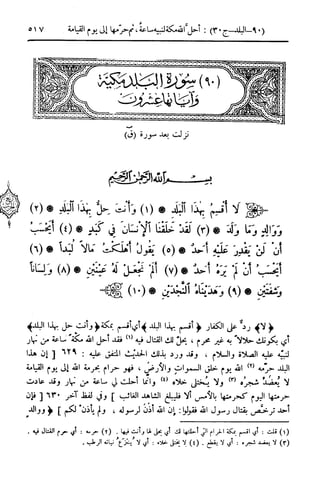 (٩٠-البلد-ج ٣٠) : أحل الله مكة لنبيه ساعة ، ثم حرّمها إلى يوم القيامة ٥١٧
(٩٠) سُورَةُ الْبَلَدِ مَكِيَّة
وَآيَاتُهَا عِشْرُونَ
نزلت بعد سورة (ق)
بِسْمِ اللَّهِ الرَّحْمَنِ الرَّحِيمِ
لَا أُقْسِمُ بِهَذَا الْبَلَدِ * (١) وَأَنتَ حِلٌّ بِهَذَا الْبَلَدِ * (٢)
وَوَالِدٍ وَمَا وَلَدَ * (٣) لَقَدْ خَلَقْنَا الْإِنسَانَ فِي كَبَدٍ * (٤) أَيَحْسَبُ
أَن لَّن يَقْدِرَ عَلَيْهِ أَحَدٌ * (٥) يَقُولُ أَهْلَكْتُ مَالًا لُّبَدًا * (٦)
أَيَحْسَبُ أَن لَّمْ يَرَهُ أَحَدٌ * (٧) أَلَمْ نَجْعَل لَّهُ عَيْنَيْنِ * (٨) وَلِسَانًا
وَشَفَتَيْنِ * (٩) وَهَدَيْنَاهُ النَّجْدَيْنِ * (١٠)
﴿لا﴾ ردٌّ على الكفار ﴿أقسم بهذا البلد﴾ أي أقسم بمكة ﴿وأنت حل بهذا البلد﴾
أي يكونك حلالاً به غير محرم ، يحلّ لك القتال فيه (١) فقد أحل الله مكة ساعة من نهار
لنبيه عليه الصلاة والسلام ، وقد ورد بذلك الحديث المتفق عليه : ٦٢٩ [ إن هذا
البلد حرمه (٢) الله يوم خلق السموات والأرض ، فهو حرام بحرمة الله إلى يوم القيامة
لا يُعضدُ شجره (٣) ولا يُختلى خلاه (٤) وإنما أحلت لي ساعة من نهار وقد عادت
حرمتها اليوم كحرمتها بالأمس ألا فليبلغ الشاهد الغائب ] وفي لفظ آخر ٦٣٠ [ فإن
أحد ترخص بقتال رسول الله فقولوا: إن الله أذن لرسوله ، ولم يأذن لكم ] ﴿ووالد
(١) قلت : أي أقسم بمكة الحرام التي أحلها لك أي يحق لها وأنت فيها . (٢) حرمه : أي حرم القتال فيه .
(٣) لا يعضد شجره : أي لا يقطع . (٤) لا يختلى خلاه : أي لا يُنتزعُ نباته الرطب .